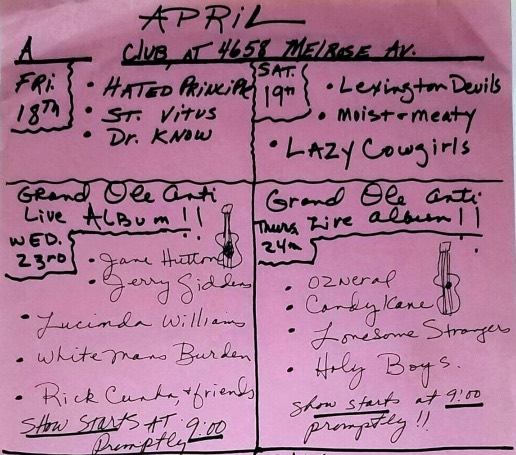 APRIL
A CLUB, AT 4658 MELROSE AV.
FRI. 18TH
• HATED PRINCIPL
• ST. VITUS
• Dr. KNOW
SAT. 19TH
• Lexington Devils
• Moist + meaty
• LAZY Cowgirls
Grand Ole Anti
Live ALBum!!
WED. 23RD
• Jane Hutton
• Jerry Giddens
• Lucinda Williams
• White Mans Burden
• Rick Cunha, + friends
SHOW STARTS AT 9:00
Promptly
Grand Ole Anti
Live album!!
Thurs 24TH
• OZNERAL
• Candy Kane
• Lonesome Strangers
• Holy Boys.
Show starts at 9:00
promptly!!